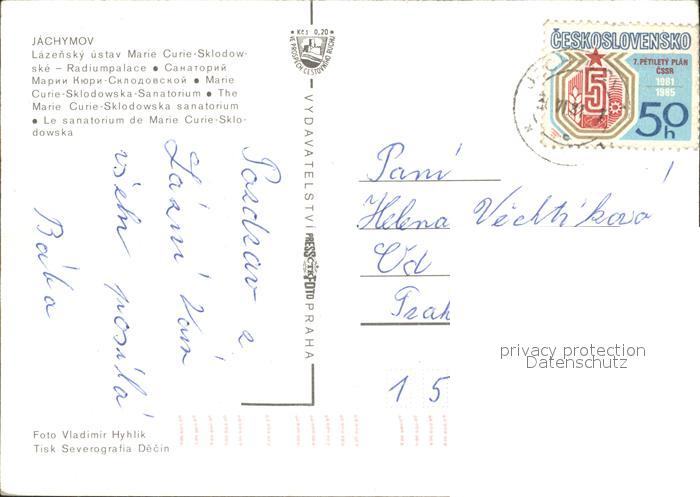 JÁCHYMOV
Lázeňský ústav Marie Curie-Sklodow-
ské – Radiumpalace • Санаторий
Марии Кюри-Склодовской • Marie
Curie-Sklodowska-Sanatorium • The
Marie Curie-Sklodowska sanatorium
• Le sanatorium de Marie Curie-Sklo-
dowska
Pozdrav z
Lázní Vám
všem posílá
Bába
Foto Vladimír Hyhlík
Tisk Severografia Děčín
Kčs 0,20
VE PROSPĚCH CESTOVNÍHO RUCHU
VYDAVATELSTVÍ PRESSFOTO PRAHA
ČTK
ČESKOSLOVENSKO
7. PĚTILETÝ PLÁN
ČSSR
1981
1985
5
50h
Paní
Helena
Od
Prah
15
privacy protection
Datenschutz